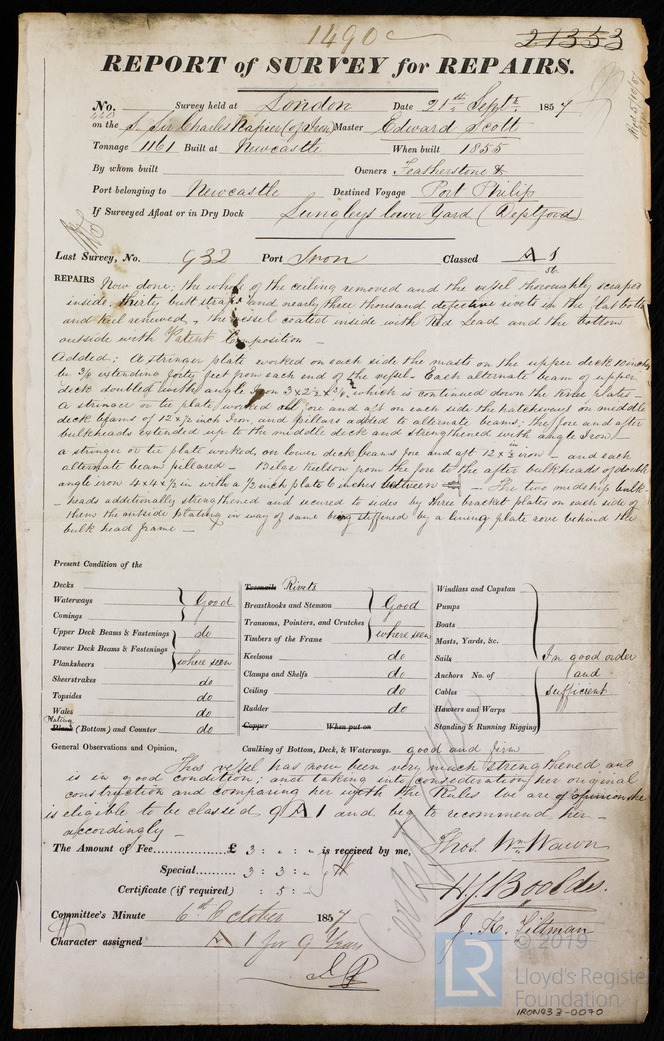 1490
21353
REPORT of SURVEY for REPAIRS.
No. Survey held at London Date 21st Septr. 1857
on the S. Sir Charles Napier (of Iron) Master Edward Scott
Tonnage 1161 Built at Newcastle When built 1855
By whom built Owners Featherstone &
Port belonging to Newcastle Destined Voyage Port Philip
If Surveyed Afloat or in Dry Dock Lungleys lower Yard (Deptford)
Last Survey, No. 932 Port Iron Classed A 1
REPAIRS Now done; the whole of the ceiling removed and the vessel thoroughly scraped
inside, thirty butt straps and nearly three thousand defective rivets in the flat bottom
and keel renewed, the vessel coated inside with Red Lead and the bottom
outside with Patent Composition —
Added; A stringer plate worked on each side the masts on the upper deck inches
by 3/8 extending forty feet from each end of the vessel. Each alternate beam of upper
deck doubled with angle Iron 3 x 2½ x which is continued down the knee plates —
A stringer or tie plate worked all fore and aft on each side the hatchways on middle
deck beams of 12 x ½ inch Iron, and pillars added to alternate beams; the fore and after
bulkheads extended up to the middle deck and strengthened with angle Iron —
a stringer or tie plate worked, on lower deck beams fore and aft 12 x ½ in iron — and each
alternate beam pillared — Bilge Keelson from the fore to the after bulkheads of double
angle iron 4 x 4 x ½ in with a ½ inch plate 6 inches between — The two midship bulk-
-heads additionally strengthened and secured to sides by three bracket plates on each side of
them the outside plating in way of same being stiffened by a lining plate rove behind the
bulk head frame —
Present Condition of the
Decks
Waterways
Comings
Good
Upper Deck Beams & Fastenings do
Lower Deck Beams & Fastenings
Planksheers
where seen
Sheerstrakes do
Topsides do
Wales do
Plating
Plank (Bottom) and Counter do
Treenails Rivets
Breasthooks and Stemson Good
Transoms, Pointers, and Crutches
Timbers of the Frame
where seen
Keelsons do
Clamps and Shelfs do
Ceiling do
Rudder do
Copper When put on
Windlass and Capstan
Pumps
Boats
Masts, Yards, &c.
Sails In good order
Anchors No. of and
Cables sufficient
Hawsers and Warps
Standing & Running Rigging
General Observations and Opinion, Caulking of Bottom, Deck, & Waterways. good and firm
This vessel has now been very much strengthened and
is in good condition; and taking into consideration her original
construction and comparing her with the Rules we are of opinion she
is eligible to be classed 9 A 1 and beg to recommend her
accordingly —
The Amount of Fee £ 3 : - : - is received by me, Thos. Wm Wawn
Special 3 : 3 : -
Certificate (if required) : 5 : -
J. H. Tiltman
Committee's Minute 6th October 1857
Character assigned A 1 for 9 Years
© 2019
LR
Lloyd's Register
Foundation
IRON933-0070